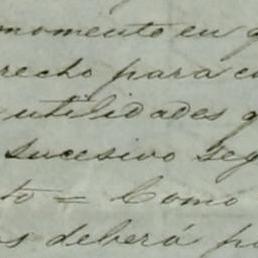 momento en q
recho para c
utilidades q
sucesivo seg
to = Como
os deberá p